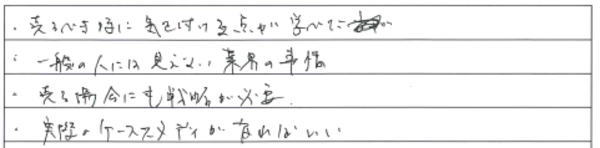 ・売るべき時に気を付ける点が学べた
・一般の人には見えない業界の事情
・売る場合にも戦略が必要.
・実際のケーススタディが有ればいい